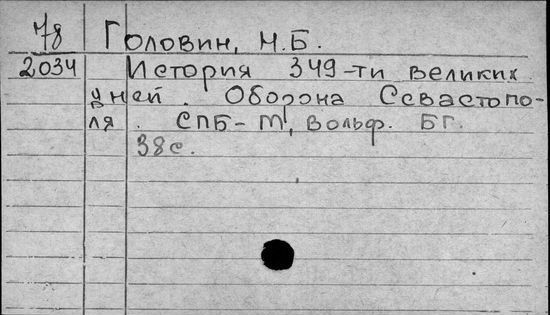 78 Головин, Н.Б.
2034 История 349-ти великих
дней. Оборона Севастопо-
ля. СПБ-М, Вольф. БГ.
38с.